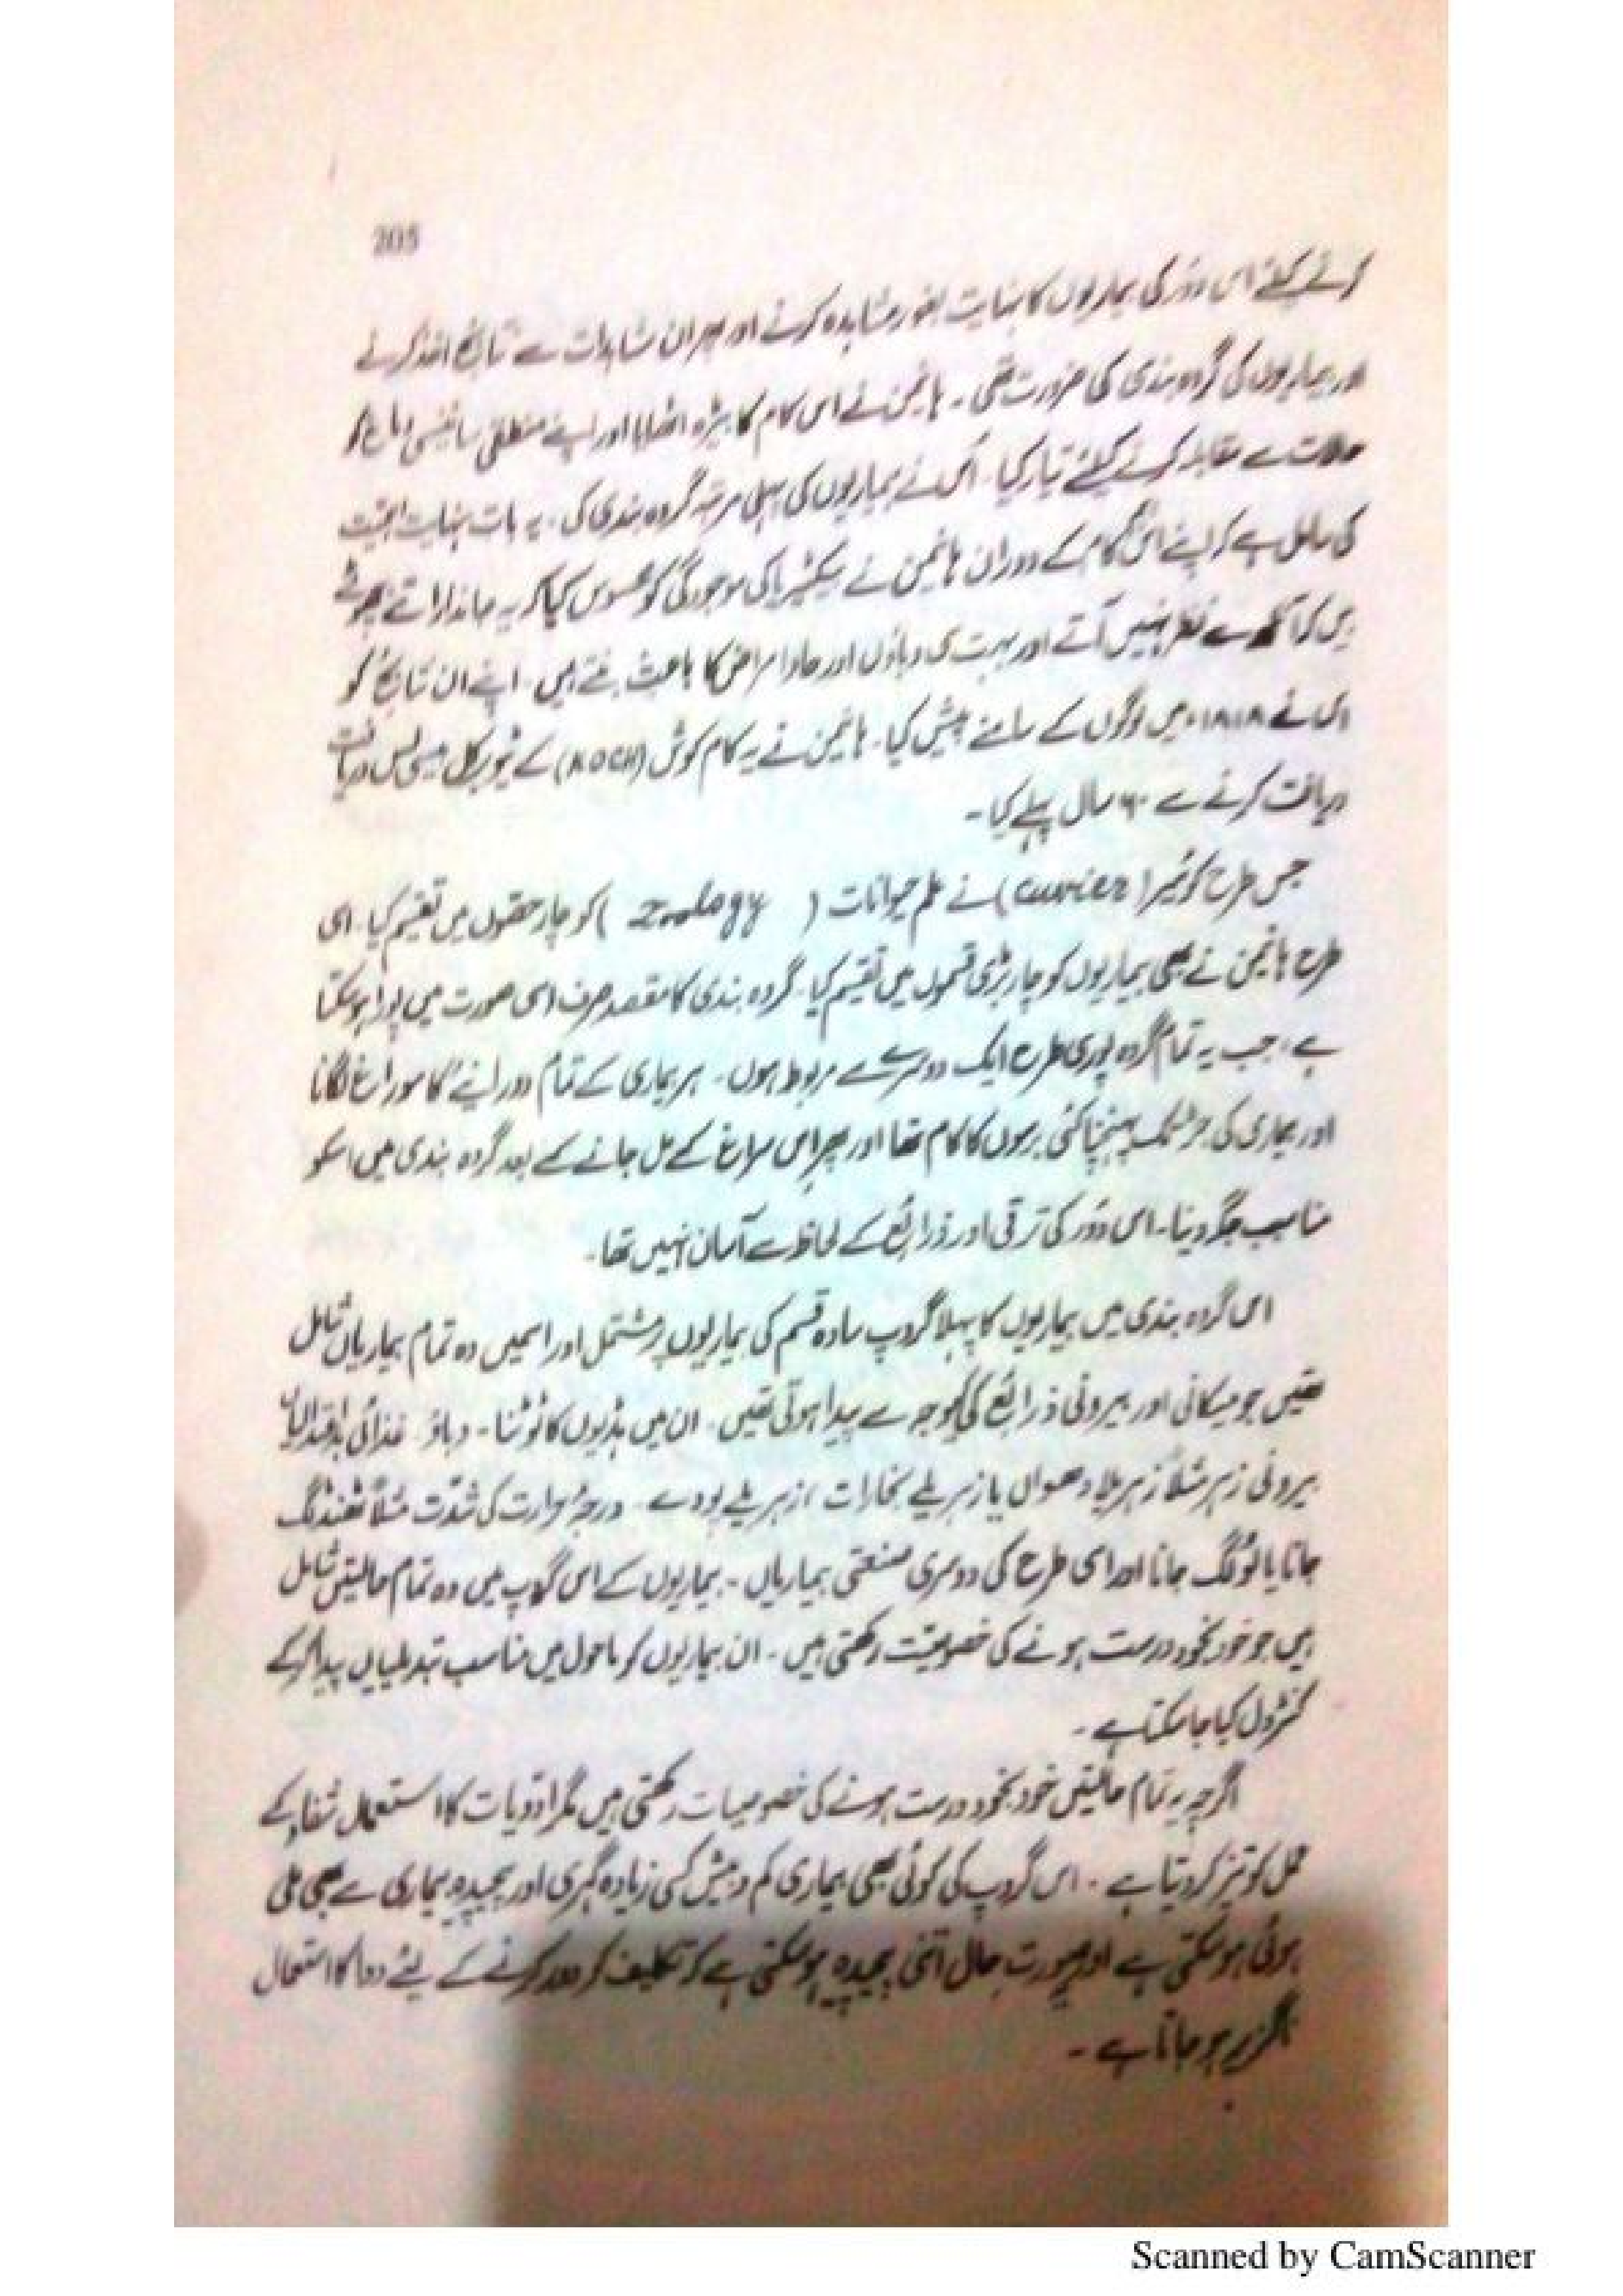 205
کرنے کیلئے اس دور کی بیماریوں کا نہایت بغور مشاہدہ کرنے اور پھر ان مشاہدات سے نتائج اخذ کرنے
اور بیماریوں کی گروہ بندی کی ضرورت تھی۔ ہانیمن نے اس کام کا بیڑہ اٹھایا اور اپنے منطقی سائنسی دماغ کو
حالات سے مقابلہ کرنے کیلئے تیار کیا۔ اُس نے بیماریوں کی پہلی مرتبہ گروہ بندی کی۔ یہ بات نہایت اہمیت
کی حامل ہے کہ اپنے اس کام کے دوران ہانیمن نے بیکٹیریا کی موجودگی کو محسوس کیا کہ یہ جاندار اتنے چھوٹے
ہیں کہ آنکھ سے نظر نہیں آتے اور بہت سی وباؤں اور حاد امراض کا باعث بنتے ہیں۔ اپنے ان نتائج کو
اس نے ۱۸۱۸ء میں لوگوں کے سامنے پیش کیا۔ ہانیمن نے یہ کام کوش (KOCH) کے ٹیوبرکل بیسی لس دریافت
دریافت کرنے سے ۶۰ سال پہلے کیا۔
جس طرح کوئیر (Cuvier) نے علم حیوانات (Zoology) کو چار حصّوں میں تقسیم کیا۔ اسی
طرح ہانیمن نے بھی بیماریوں کو چار بڑی قسموں میں تقسیم کیا۔ گروہ بندی کا مقصد صرف اسی صورت میں پورا ہوسکتا
ہے، جب یہ تمام گروہ پوری طرح ایک دوسرے سے مربوط ہوں۔ ہر بیماری کے تمام دورانیے کا سوراغ لگانا
اور بیماری کی جڑ تک پہنچنا کئی برسوں کا کام تھا اور پھر اس سراغ کے مل جانے کے بعد گروہ بندی میں اسکو
مناسب جگہ دینا۔ اس دور کی ترقی اور ذرائع کے لحاظ سے آسان نہیں تھا۔
اس گروہ بندی میں بیماریوں کا پہلا گروپ سادہ قسم کی بیماریوں پر مشتمل اور اسمیں وہ تمام بیماریاں شامل
تھیں جو میکانی اور بیرونی ذرائع کی وجہ سے پیدا ہوتی تھیں۔ ان میں ہڈیوں کا ٹوٹنا۔ دباؤ۔ غذائی
بیرونی زہر مثلاً زہریلا دھواں یا زہریلے بخارات، زہریلے پودے۔ درجۂ حرارت کی شدّت مثلاً ٹھنڈ لگ
جانا یا لُو لگ جانا اور اسی طرح کی دوسری صنعتی بیماریاں۔ بیماریوں کے اس گروپ میں وہ تمام حالتیں شامل
ہیں جو خود بخود درست ہونے کی خصوصیّت رکھتی ہیں۔ ان بیماریوں کو ماحول میں مناسب تبدیلیاں پیدا کرکے
کنٹرول کیا جاسکتا ہے۔
اگرچہ یہ تمام حالتیں خود بخود درست ہونے کی خصوصیات رکھتی ہیں مگر ادویات کا استعمال شفاء کے
عمل کو تیز کر دیتا ہے۔ اس گروپ کی کوئی بھی بیماری کم و بیش کسی زیادہ گہری اور پیچیدہ بیماری سے بھی ملی
ہوئی ہوسکتی ہے اور صورت حال اتنی پیچیدہ ہوسکتی ہے کہ تکلیف کو دور کرنے کے لئے دوا کا استعمال
ناگزیر ہوجاتا ہے۔
Scanned by CamScanner